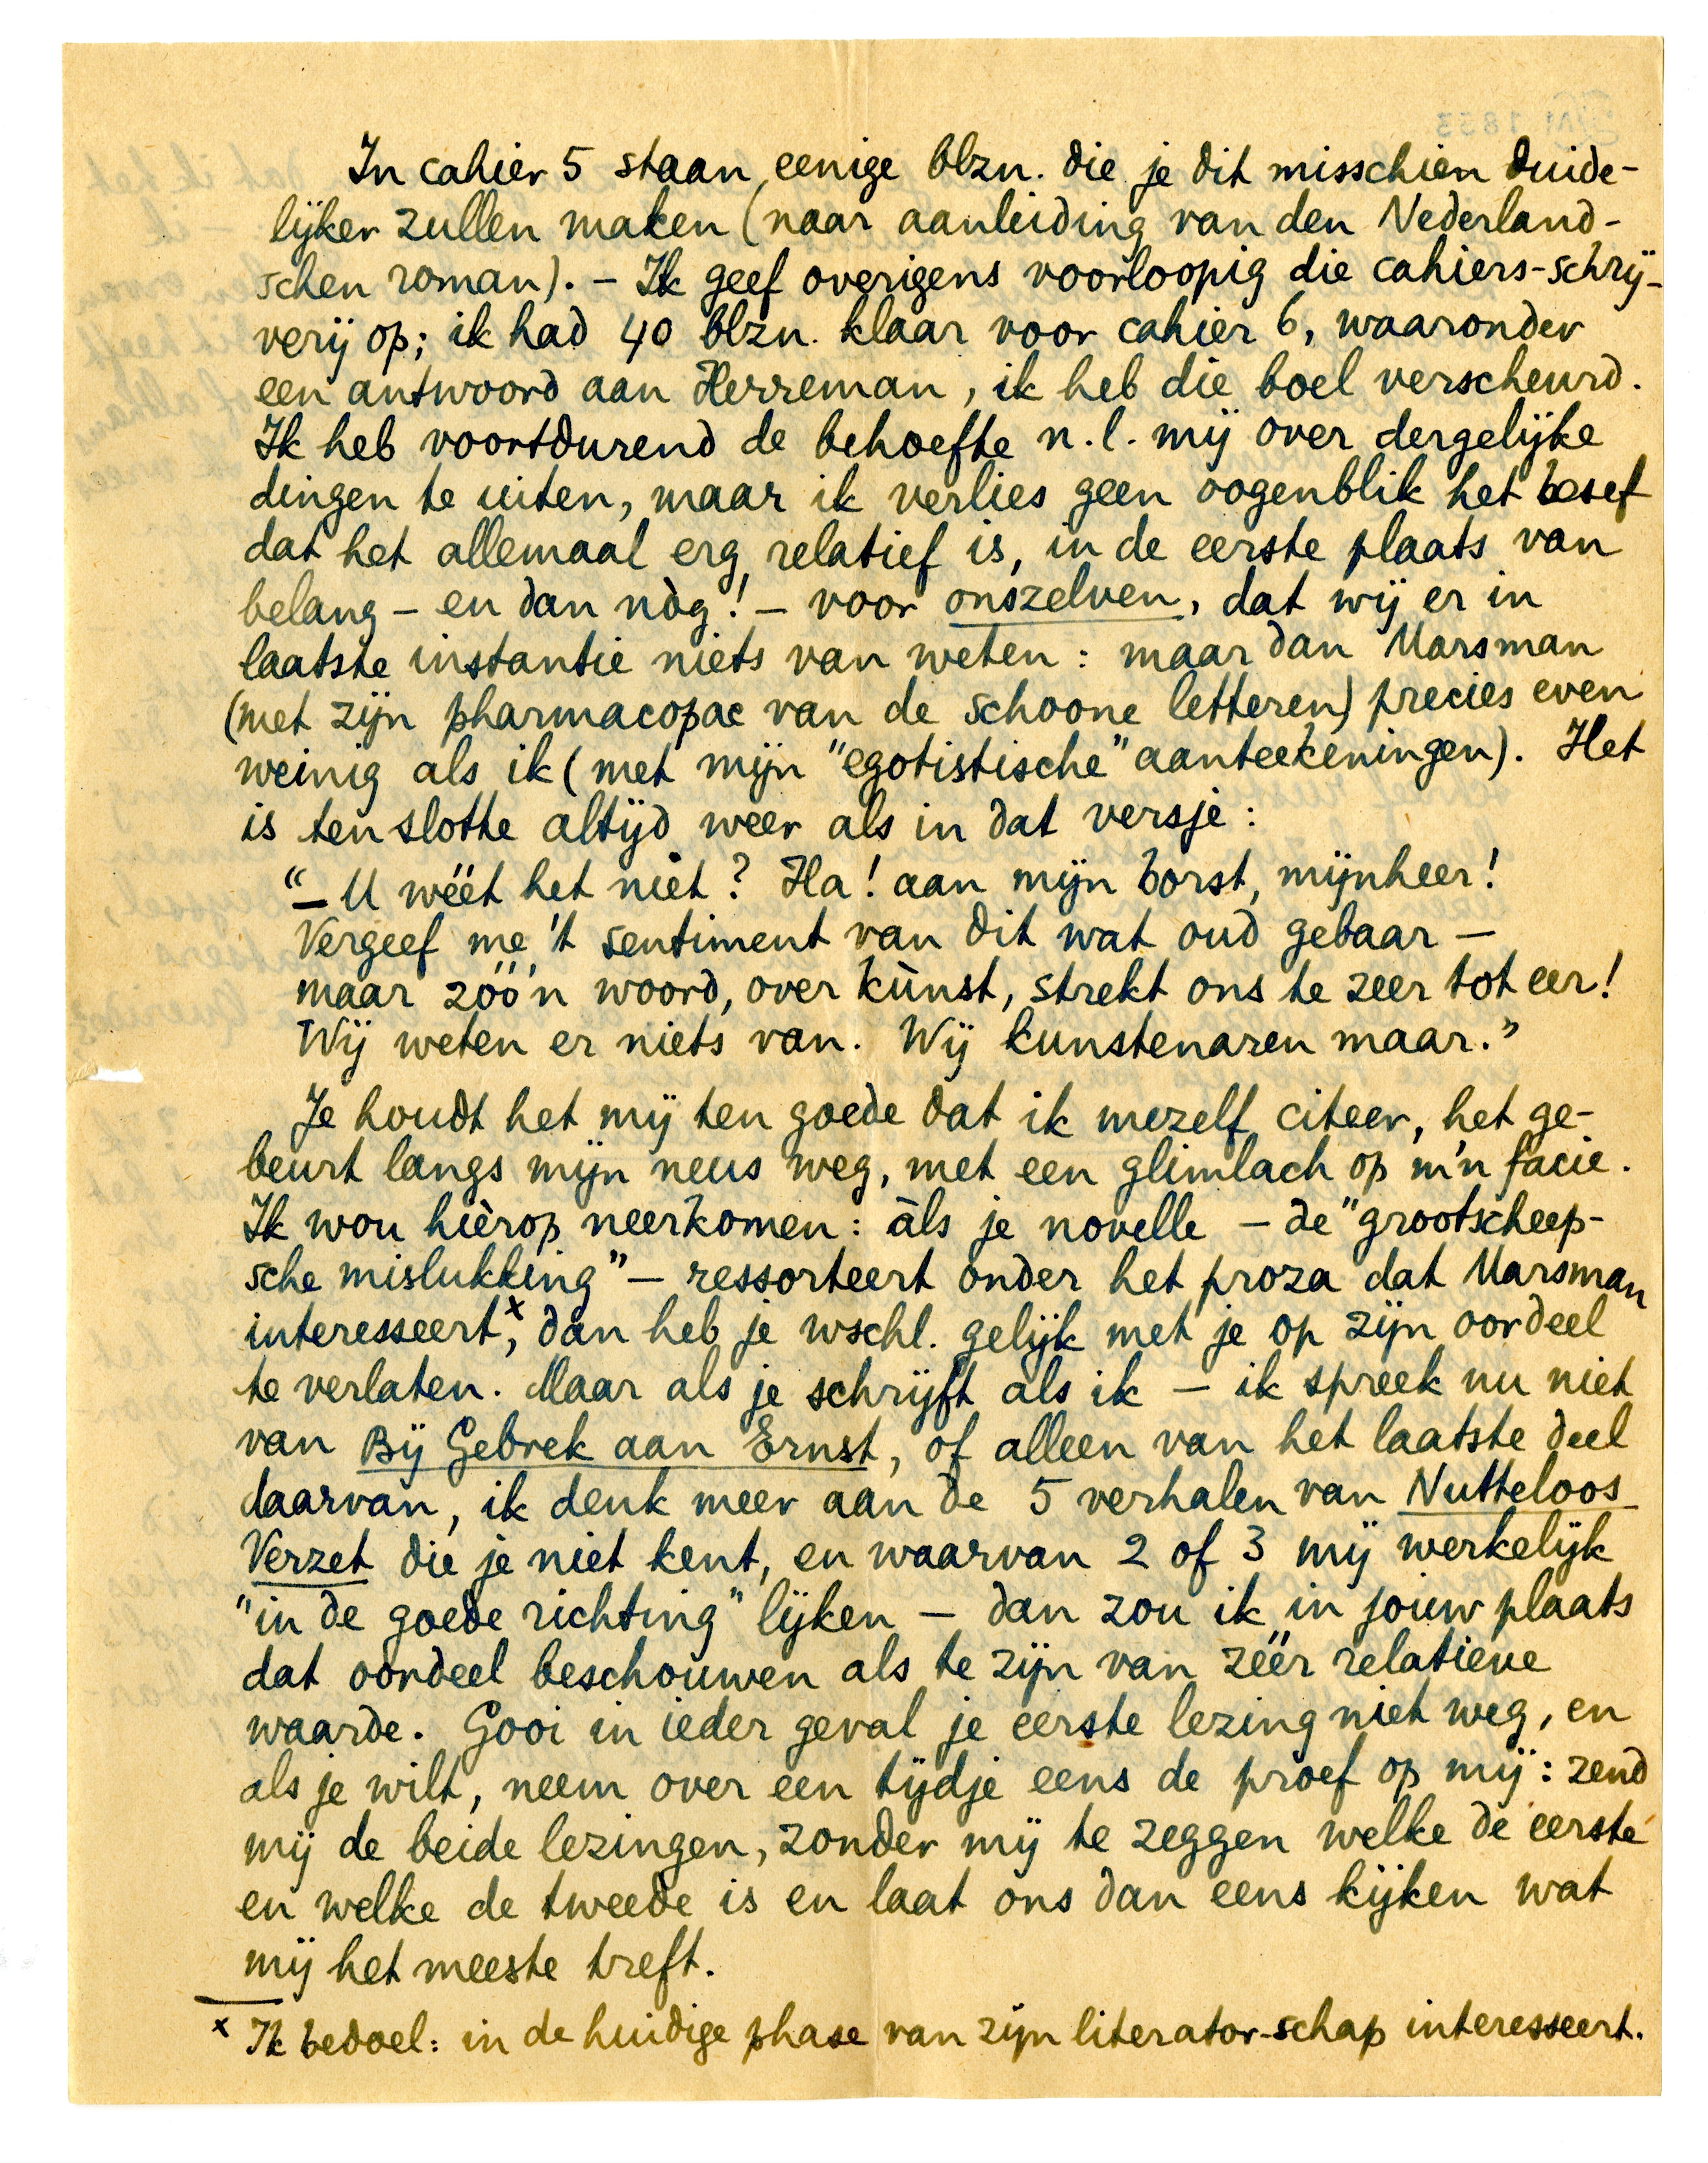 In cahier 5 staan eenige blzn. die je dit misschien duide-
lijker zullen maken (naar aanleiding van den Nederland-
schen roman). – Ik geef overigens voorloopig die cahiers-schrij-
verij op; ik had 40 blzn. klaar voor cahier 6, waaronder
een antwoord aan Herreman, ik heb die boel verscheurd.
Ik heb voortdurend de behoefte n.l. mij over dergelijke
dingen te uiten, maar ik verlies geen oogenblik het besef
dat het allemaal erg relatief is, in de eerste plaats van
belang – en dan nòg! – voor onszelven, dat wij er in
laatste instantie niets van weten: maar dan Marsman
(met zijn pharmacopae van de schoone letteren) precies even
weinig als ik (met mijn "egotistische" aanteekeningen). Het
is ten slotte altijd weer als in dat versje:
"– U wéét het niet? Ha! aan mijn borst, mijnheer!
Vergeef me 't sentiment van dit wat oud gebaar –
maar zóó'n woord, over kùnst, strekt ons te zeer tot eer!
Wij weten er niets van. Wij kunstenaren maar."
Je houdt het mij ten goede dat ik mezelf citeer, het ge-
beurt langs mijn neus weg, met een glimlach op m'n facie.
Ik wou hièrop neerkomen: àls je novelle – de "grootscheep-
sche mislukking" – ressorteert onder het proza dat Marsman
interesseert,x dan heb je wschl. gelijk met je op zijn oordeel
te verlaten. Maar als je schrijft als ik – ik spreek nu niet
van Bij Gebrek aan Ernst, of alleen van het laatste deel
daarvan, ik denk meer aan de 5 verhalen van Nutteloos
Verzet die je niet kent, en waarvan 2 of 3 mij werkelijk
"in de goede richting" lijken – dan zou ik in jouw plaats
dat oordeel beschouwen als te zijn van zéér relatieve
waarde. Gooi in ieder geval je eerste lezing niet weg, en
als je wilt, neem over een tijdje eens de proef op mij: zend
mij de beide lezingen, zonder mij te zeggen welke de eerste
en welke de tweede is en laat ons dan eens kijken wat
mij het meeste treft.
x Ik bedoel: in de huidige phase van zijn literator-schap interesseert.